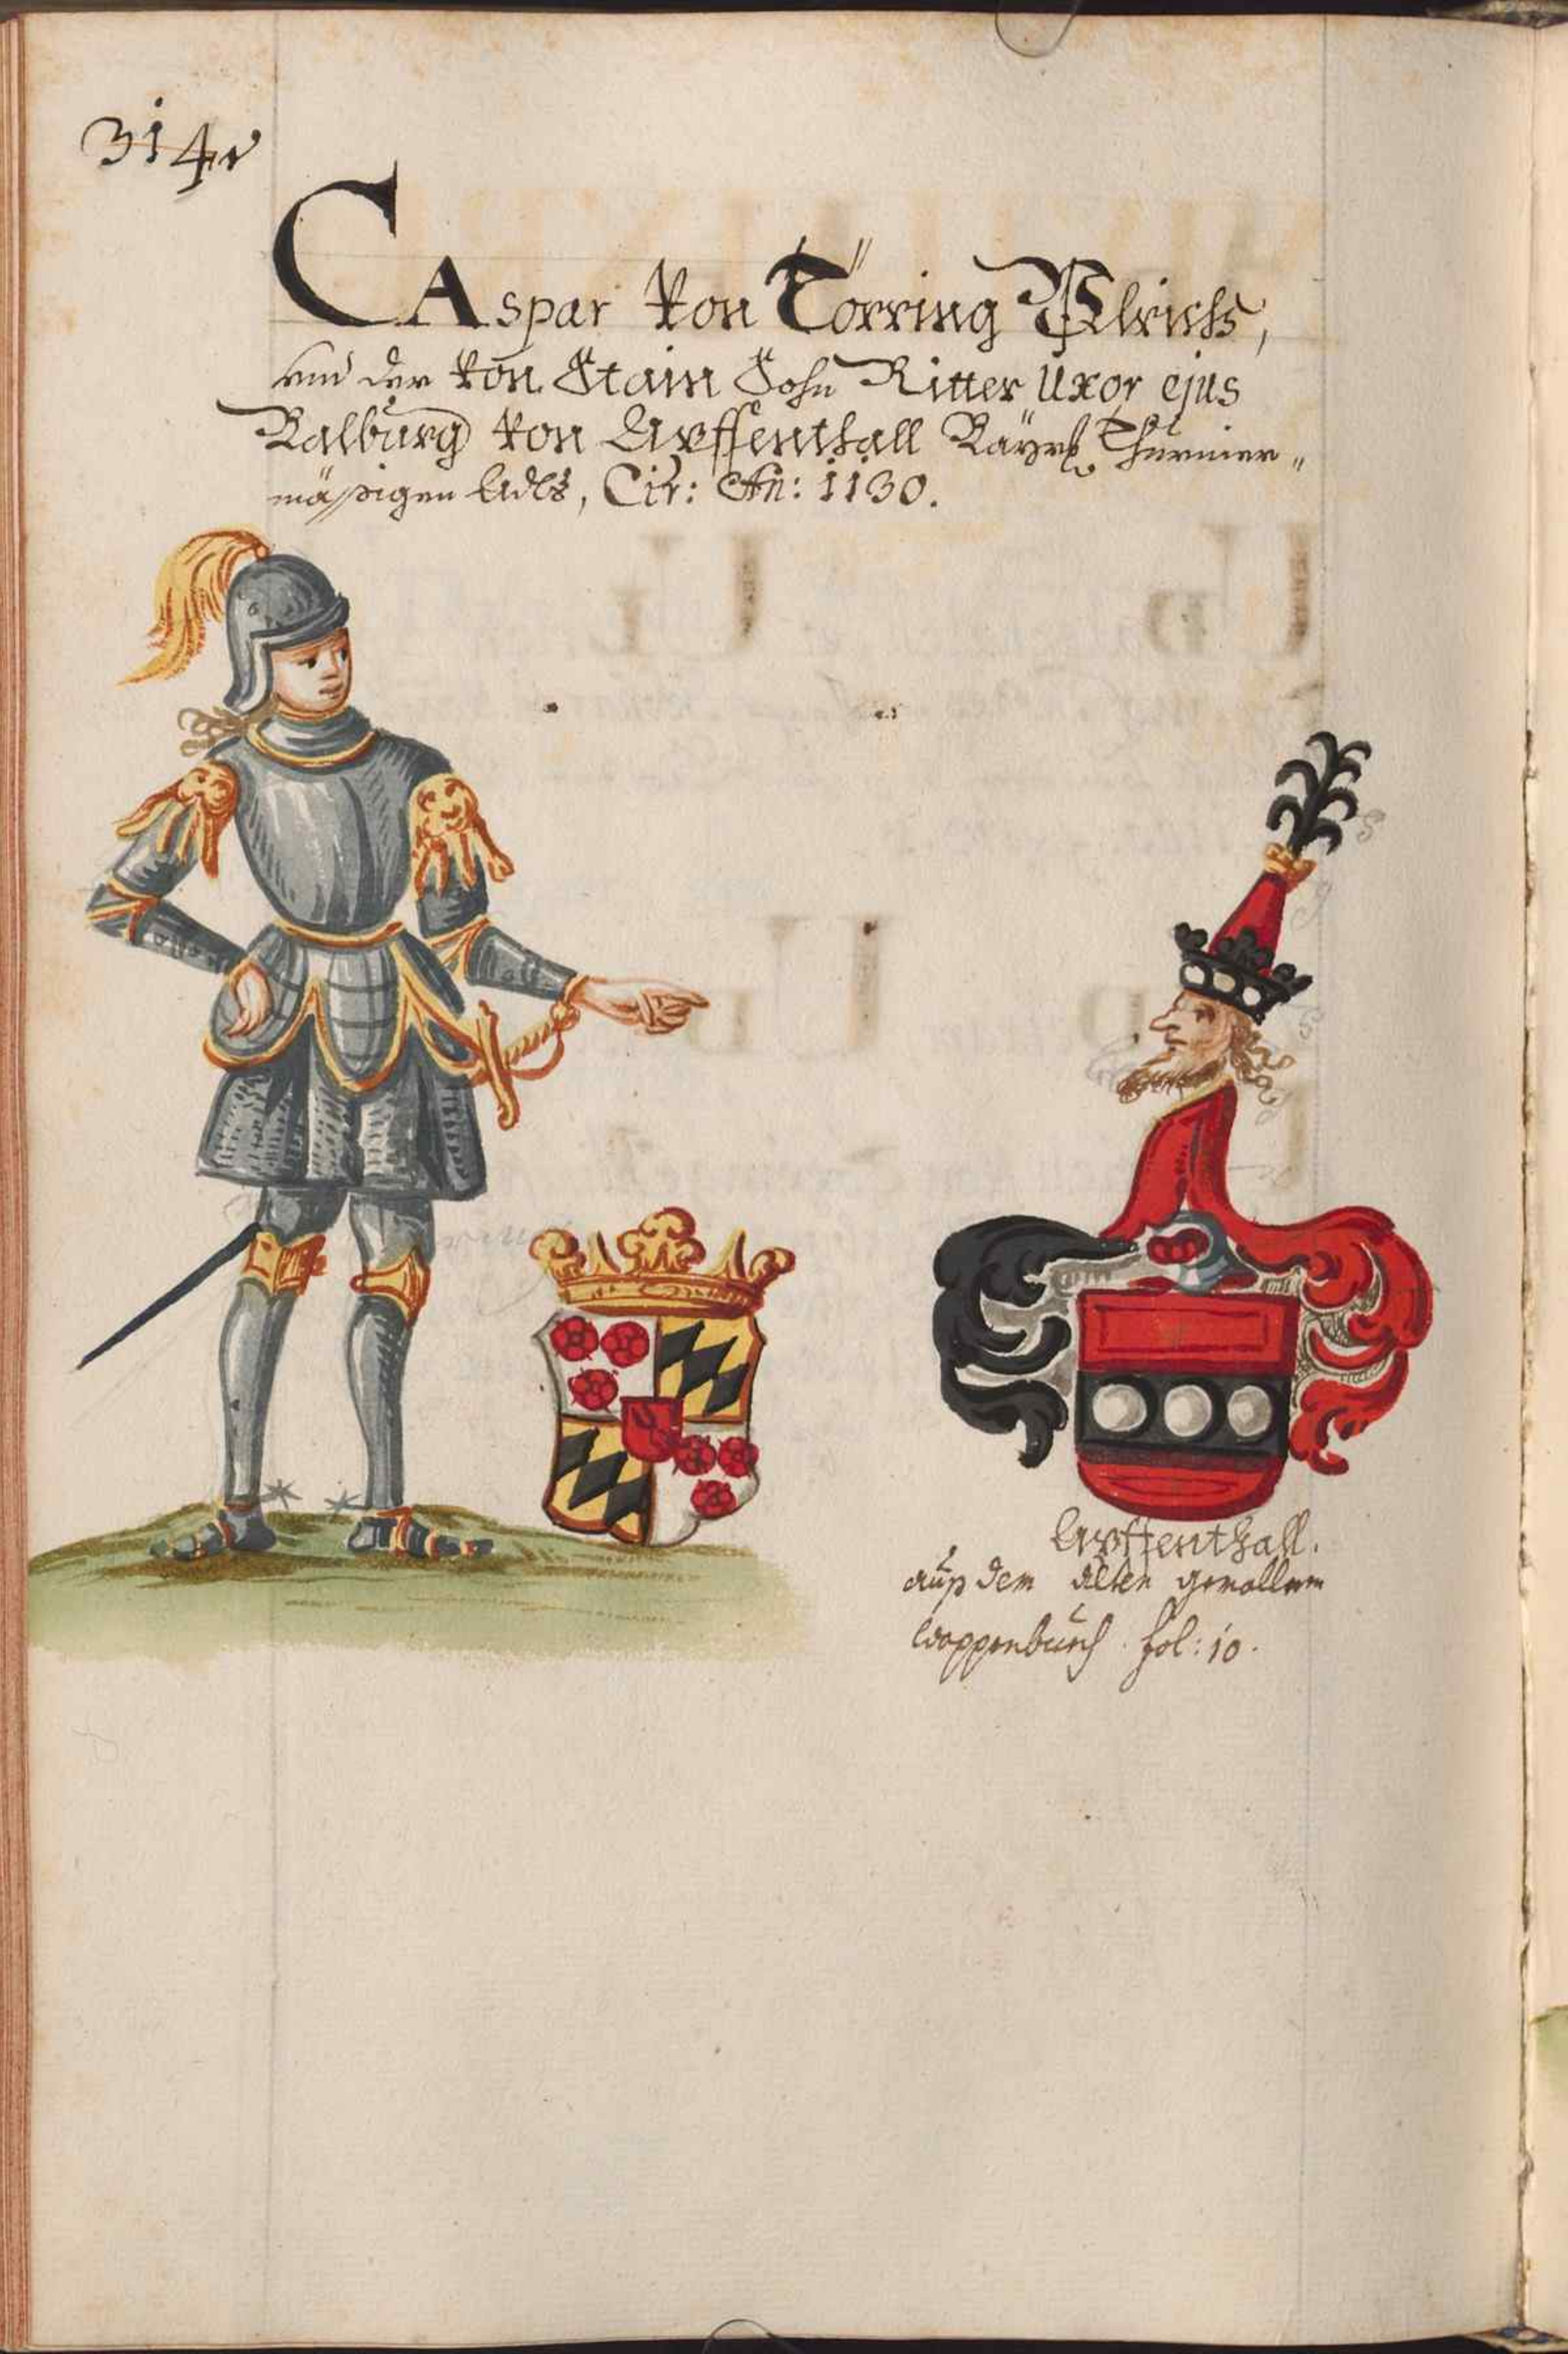 314v
CAspar Von Törring Vlrichs,
und der Von Stain Sohn Ritter Uxor ejus
Walburg Von Auffenthall Bayrs Thurnier„
mässigen Adls, Cir: An: 1130.
Auffenthall.
auß dem alten gemallnen
Wappenbuech fol: 10.